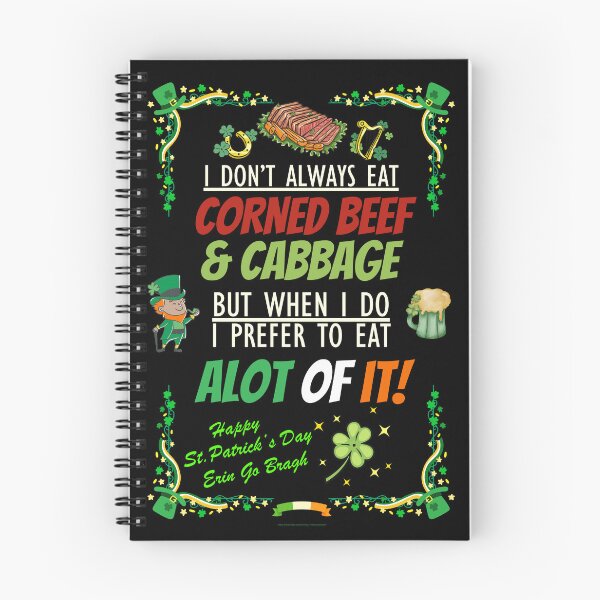 I DON'T ALWAYS EAT
CORNED BEEF
& CABBAGE
BUT WHEN I DO
I PREFER TO EAT
ALOT OF IT!
Happy
St.Patrick's Day
Erin Go Bragh